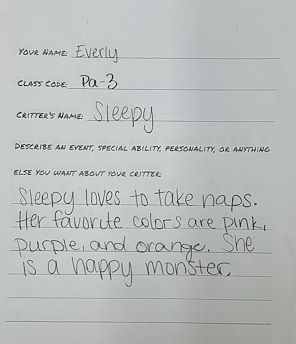 YOUR NAME: Everly
CLASS CODE: Pa-3
CRITTER'S NAME: Sleepy
DESCRIBE AN EVENT, SPECIAL ABILITY, PERSONALITY, OR ANYTHING
ELSE YOU WANT ABOUT YOUR CRITTER:
Sleepy loves to take naps.
Her favorite colors are pink,
purple, and orange. She
is a happy monster.